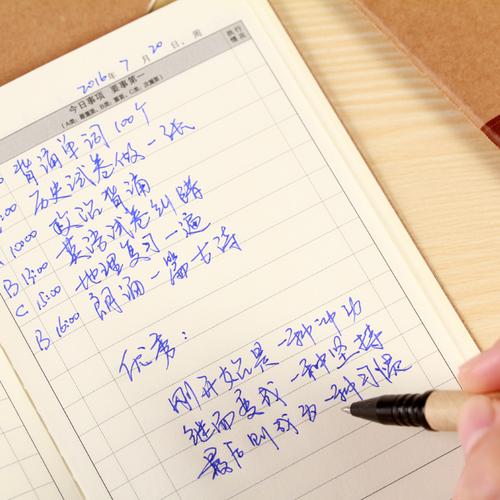 2016年 7月 20日, 周
今日事项 要事第一
(A类、最重要, B类、重要, C类、次重要)
执行情况
背诵单词100个
:00 历史试卷做一张
A 10:00 政治背诵
B 13:00 英语试卷纠错
C 15:00 地理复习一遍
B 16:00 朗诵一篇古诗
优秀:
刚开始是一种冲动
继而变成一种坚持
最后则成为一种习惯